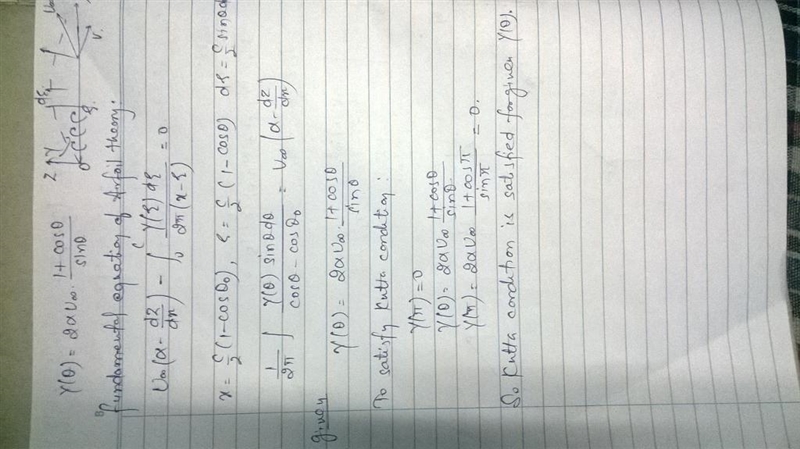 γ(θ) = 2αU∞ · (1+cosθ)/(sinθ)
Z γ dξ
Fundamental equation of Airfoil theory.
U∞(α - dz/dx) - ∫₀ᶜ γ(ξ)dξ / 2π(x-ξ) = 0
x = c/2 (1-cosθ₀), ξ = c/2 (1-cosθ) dξ = c/2 sinθ d
1/2π ∫ γ(θ) sinθ dθ / cosθ - cosθ₀ = U∞ (α - dz/dx)
given
γ(θ) = 2αU∞ · (1+cosθ)/(sinθ)
To satisfy Kutta condition:
γ(π) = 0
γ(θ) = 2αU∞ (1+cosθ)/(sinθ)
γ(π) = 2αU∞ (1+cosπ)/(sinπ) = 0.
So Kutta condition is satisfied for given γ(θ).